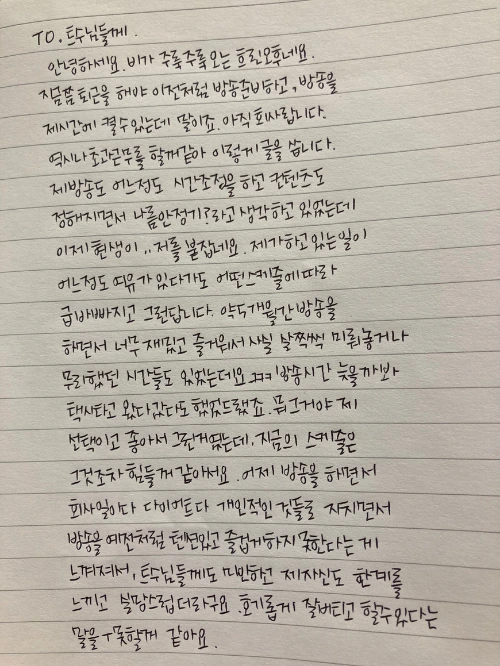 TO. 트수님들께.
안녕하세요. 비가 주룩주룩 오는 흐린오후네요.
지금쯤 퇴근을 해야 이전처럼 방송준비하고, 방송을
제시간에 켤수있는데 말이죠. 아직 회사랍니다.
역시나 초과근무를 할꺼같아 이렇게 글을 씁니다.
제방송도 어느정도 시간조정을 하고 컨텐츠도
정해지면서 나름안정기?라고 생각하고 있었는데
이제 현생이 .. 저를 붙잡네요. 제가하고 있는일이
어느정도 여유가 있다가도 어떤스케줄에따라
급바빠지고 그런답니다. 약5개월간방송을
하면서 너무 재밌고 즐거워서 사실 살짝씩 미뤄놓거나
무리했던 시간들도 있었는데요 ㅋㅋㅋ 방송시간 늦을까봐
택시타고 왔다갔다도 했었드랬죠. 뭐그거야 제
선택이고 좋아서 그런거였는데, 지금의 스케줄은
그것조차 힘들꺼같아서요. 어제 방송을 하면서
회사일이다 다이어트다 개인적인 것들로 지치면서
방송을 예전처럼 텐션있고 즐겁게하지 못한다는 게
느껴져서, 트수님들께도 미안하고 제자신도 한계를
느끼고 실망스럽더라구요. 호기롭게 잘버티고 할수있다는
말을 못할께 같아요.